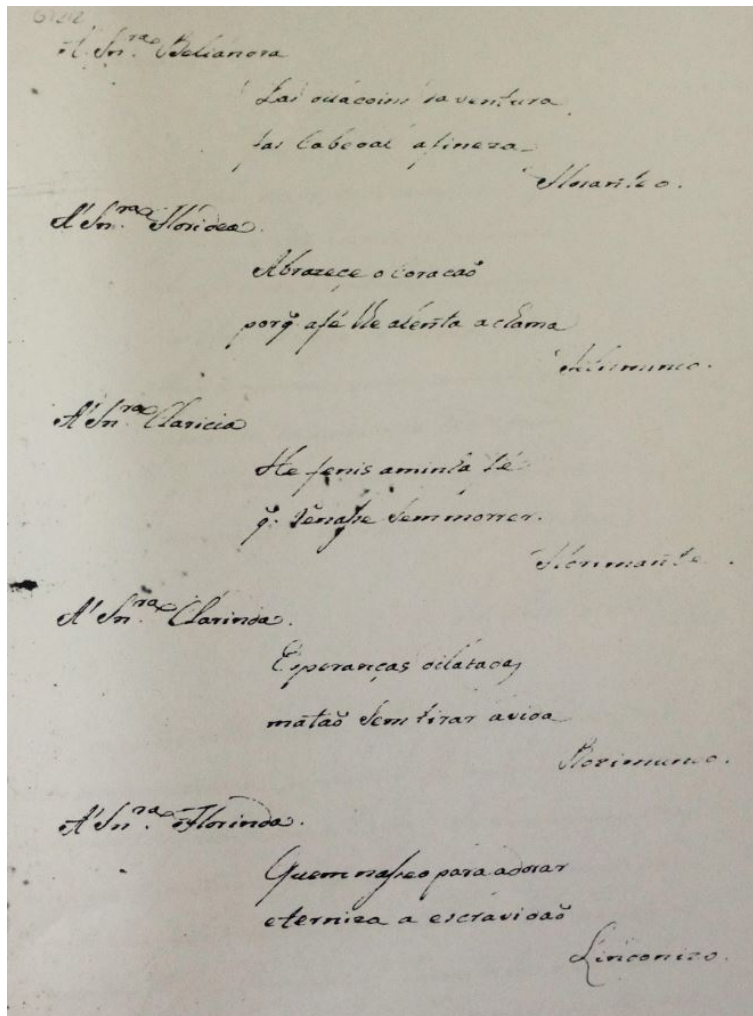 A' Snr.ª Belianora
Las dilaçoins da ventura
fas Cabedal afineza
Floranteo.
A' Snr.ª Floridea.
Abrazeçe o Coracaõ
porq̃ afé lhe alenta a chama
A' Snr.ª Claricia
He fenis aminha fé
q̃. Renasse Sem morrer.
Florimante.
A' Snr.ª Clarinda.
Esperanças dilatadas
mataõ Sem tirar avida
Florimundo.
A' Snr.ª Florinda.
Quem nasseo para adorar
eterniza a escravidaõ